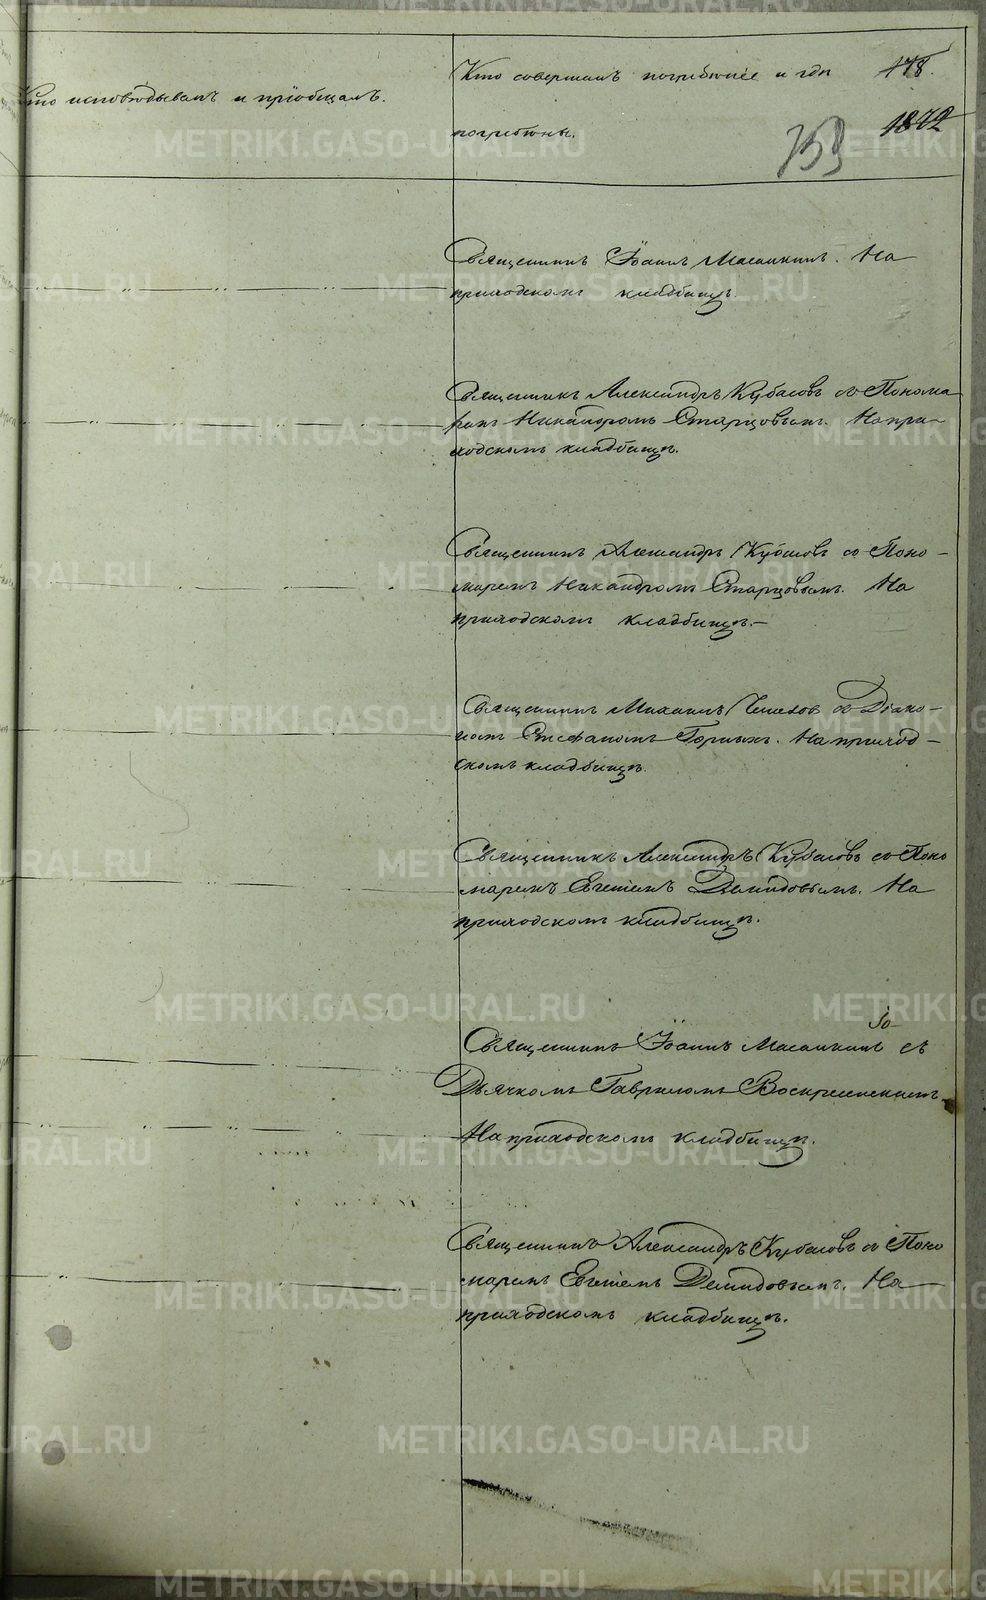 Кто исповѣдывалъ и пріобщалъ.
Кто совершалъ погребеніе и гдѣ
погребены.
178.
1872
753
Священникъ Іоаннъ Масанкинъ. На
приходскомъ кладбищѣ.
Священникъ Александръ Кубасовъ со Понома
ремъ Никандромъ Старцовымъ. На при-
ходскомъ кладбищѣ.
Священникъ Александръ Кубасовъ со Поно-
маремъ Никандромъ Старцовымъ. На
приходскомъ кладбищѣ.-
Священникъ Михаилъ со Діако-
номъ Стефаномъ Горныхъ. На приход-
скомъ кладбищѣ.
Священникъ Александръ Кубасовъ со Поно
маремъ Евгеніемъ Демидовымъ. На
приходскомъ кладбищѣ.
Священникъ Іоаннъ Масанкинъ съ
Дьячкомъ Гавріиломъ Воскресенскимъ.
На приходскомъ кладбищѣ.
Священникъ Александръ Кубасовъ со Поно
маремъ Евгеніемъ Демидовымъ. На
приходскомъ кладбищѣ.
METRIKI.GASO-URAL.RU